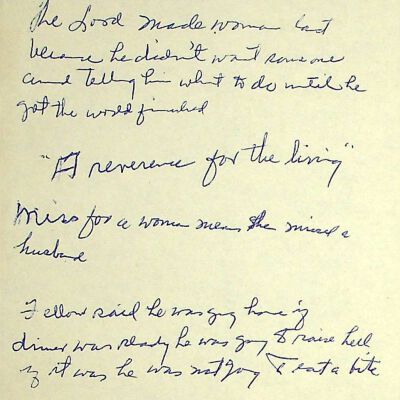 The Lord made woman last
because he didn't want someone
around telling him what to do until he
got the world finished
"A reverence for the living"
Miss for a woman means she missed a
husband
Fellow said he was going home if
dinner was ready he was going to raise hell
if it was he was not going to eat a bite